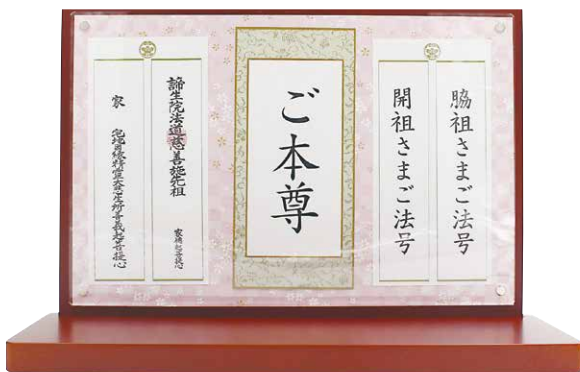 脇祖さまご法号
開祖さまご法号
ご本尊
諦生院法道慈善施先祖
家徳起菩提心
家